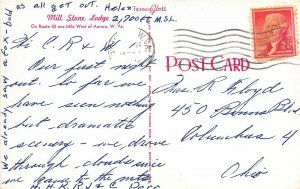 We already saw a fox - bold
as all get out. Helen
TEKNOGloss
Mill Stone Lodge
2,200 Ft M.S.L.
On Route 50 one Mile West of Aurora, W. Va.
Hi C.R. & W.
Our first night
out. So far we
have seen nothing
but dramatic
scenery - we drove
through clouds since
we came to the mts.
POST CARD
2¢
Mrs. R. Lloyd
450 Blvd
Columbus 4
Ohio